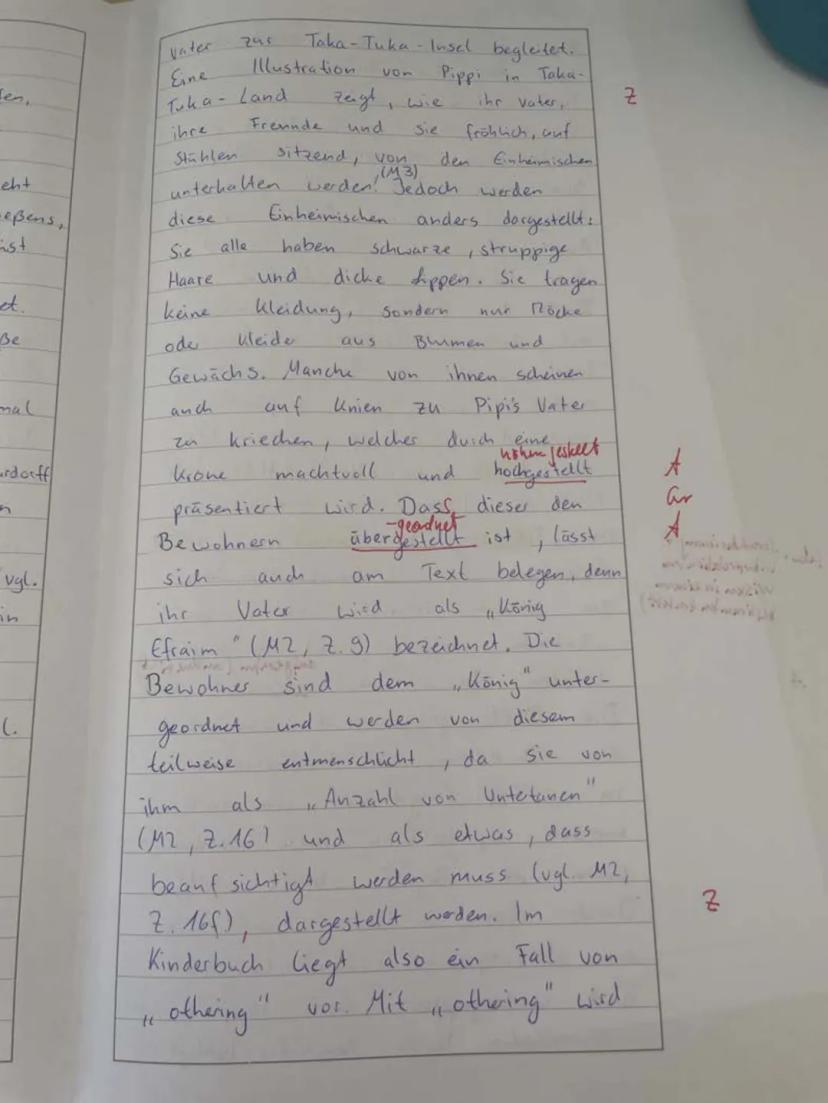 Vater zur Taka-Tuka-Insel begleitet.
Eine Illustration von Pippi in Taka-
Tuka-Land zeigt, wie ihr Vater,
Z
ihre Freunde und sie fröhlich, auf
Stühlen sitzend, von den Einheimischen
(M3)
unterhalten werden. Jedoch werden
diese Einheimischen anders dargestellt:
Sie alle haben schwarze, struppige
Haare und dicke Lippen. Sie tragen
keine Kleidung, sondern nur Röcke
oder Kleider aus Blumen und
Gewächs. Manche von ihnen scheinen
auch auf Knien zu Pipi's Vater
zu kriechen, welcher durch eine
höher gestellt
Krone machtvoll und hochgestellt
A
präsentiert wird. Dass dieser den
Gr
-geordnet
Bewohnern übergestellt ist, lässt
A
sich auch am Text belegen, denn
ihr Vater wird als „König
Efraim" (M2, Z. 9) bezeichnet. Die
Bewohner sind dem „König" unter-
geordnet und werden von diesem
teilweise entmenschlicht, da sie von
ihm als „Anzahl von Untertanen"
(M2, Z.16) und als etwas, dass
beaufsichtigt werden muss (vgl. M2,
Z. 16f), dargestellt werden. Im
Z
Kinderbuch liegt also ein Fall von
„othering" vor. Mit „othering" wird
fen,
eht
eßens,
ist
et.
ße
mal
urdorff
n
vgl.
in
l.